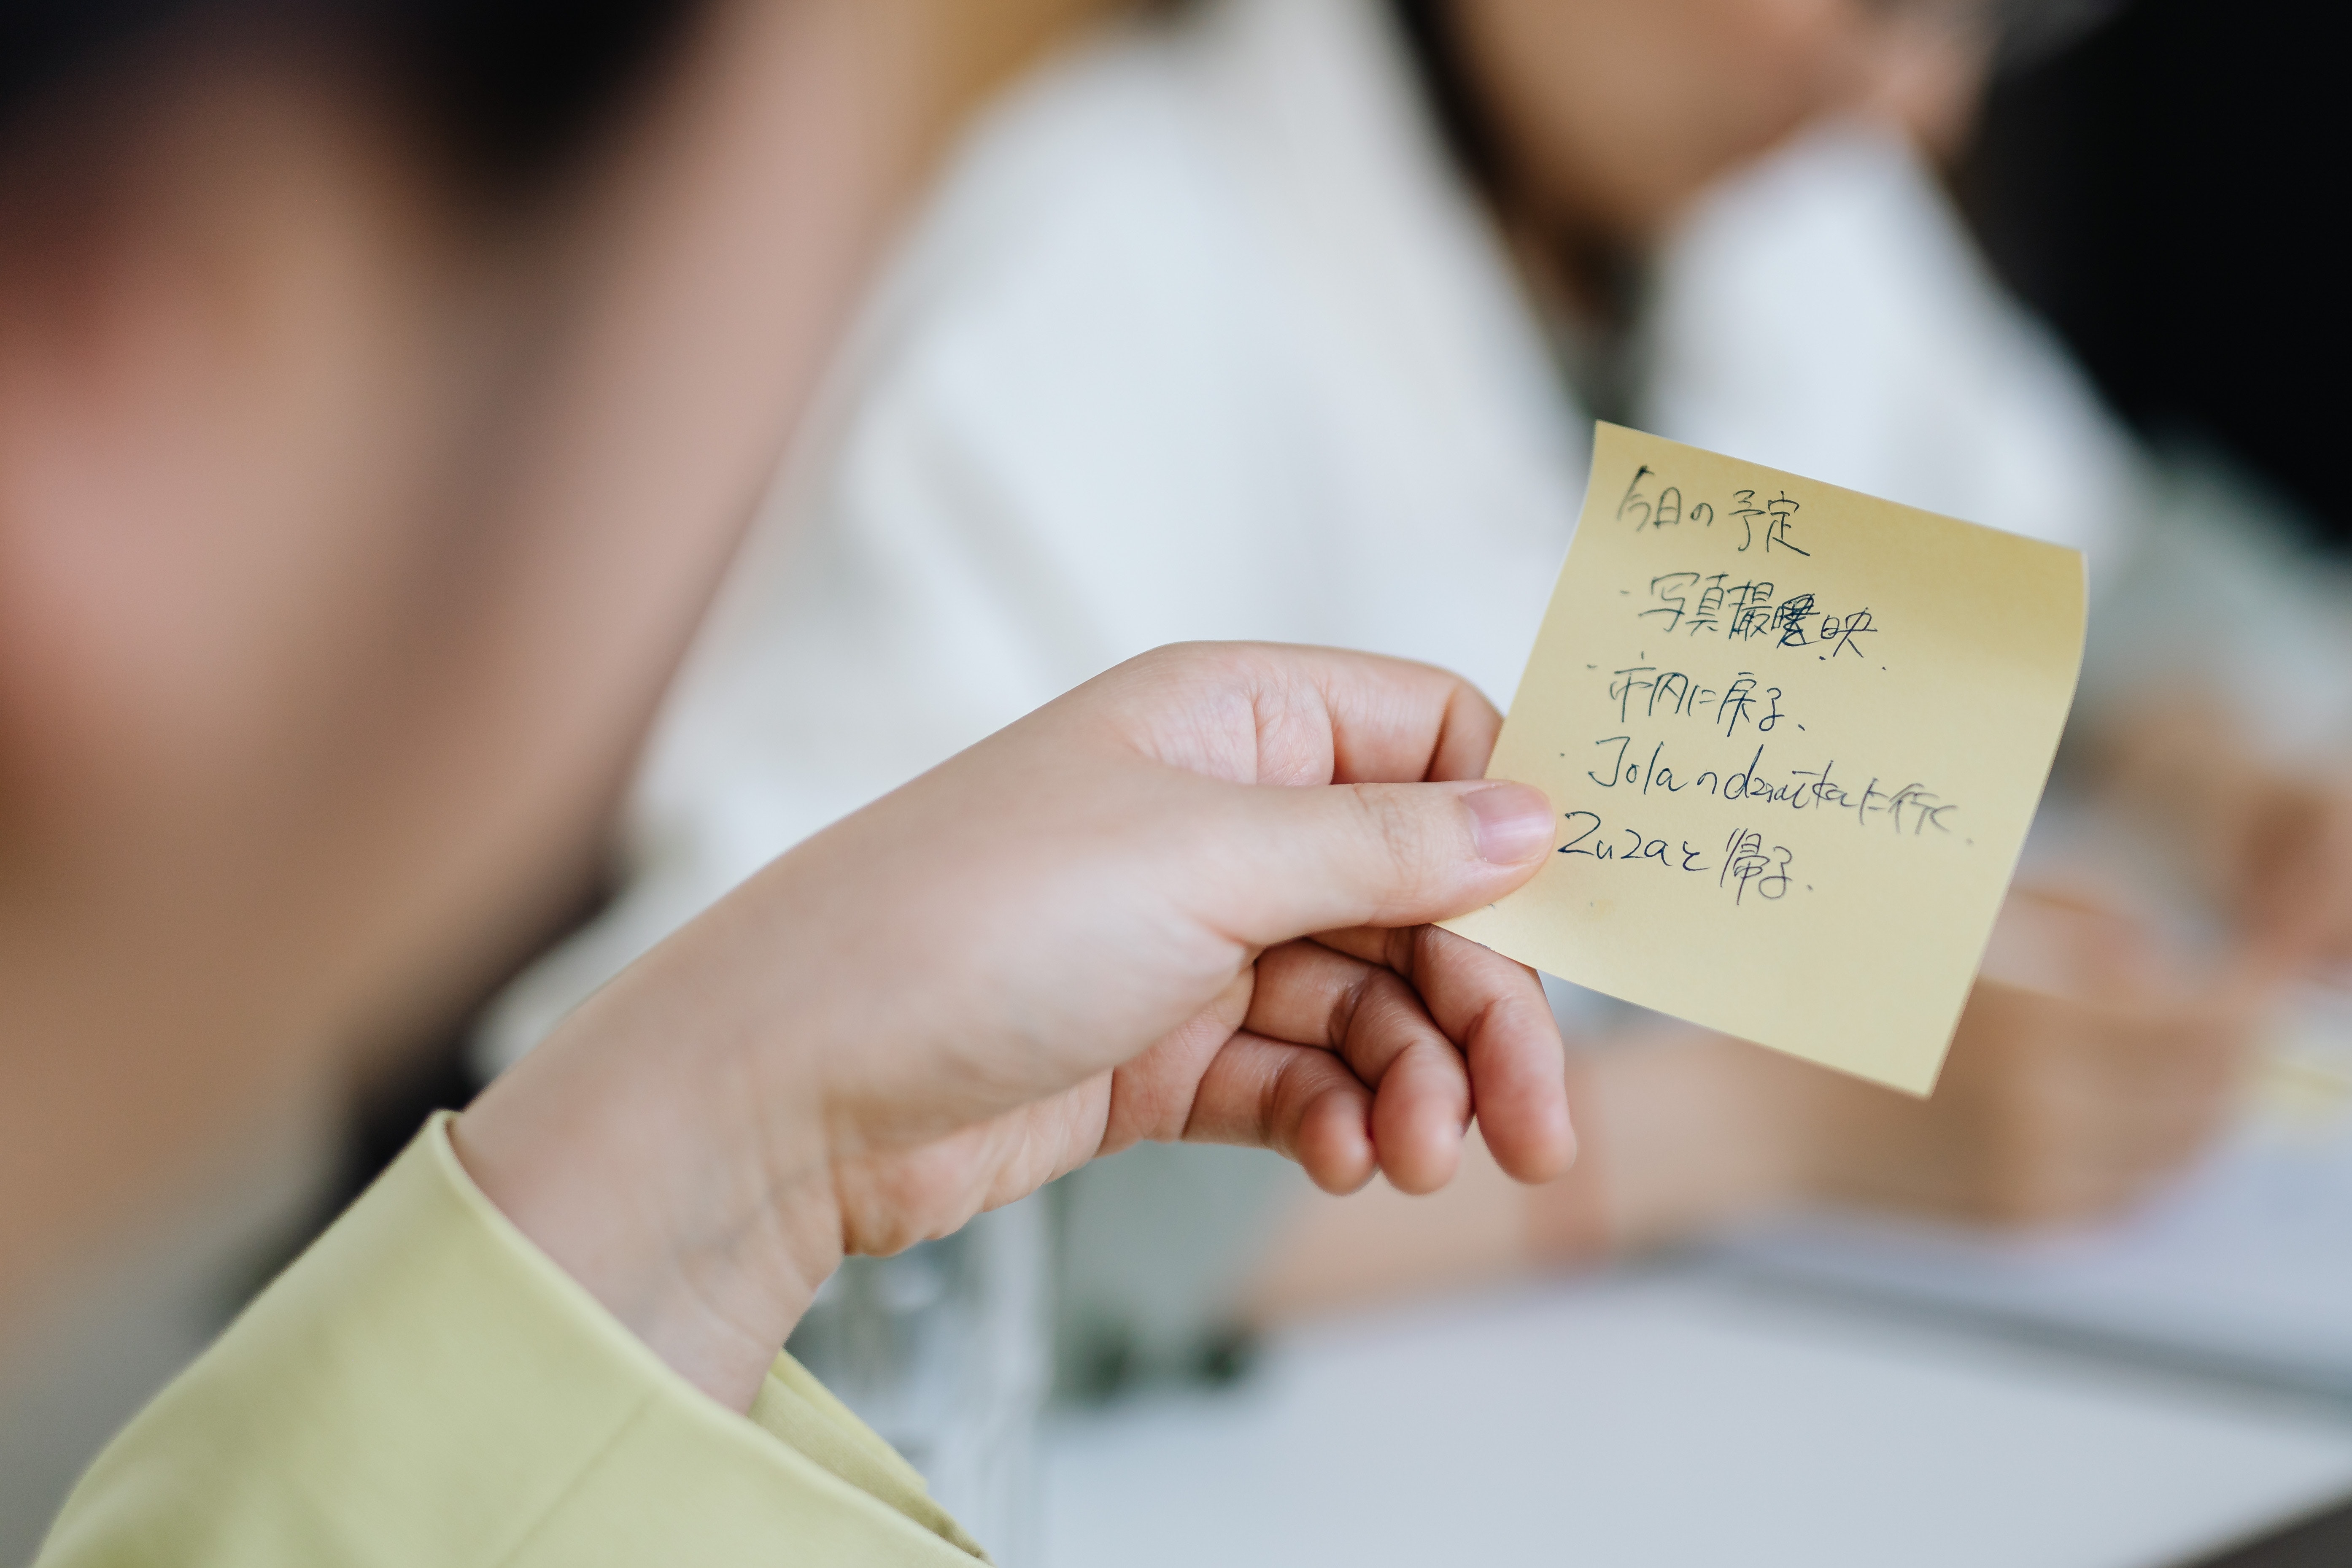 今日の予定
・写真撮映.
・市内に戻る.
・Jolaの działkaに行く.
Zuzaと帰る.